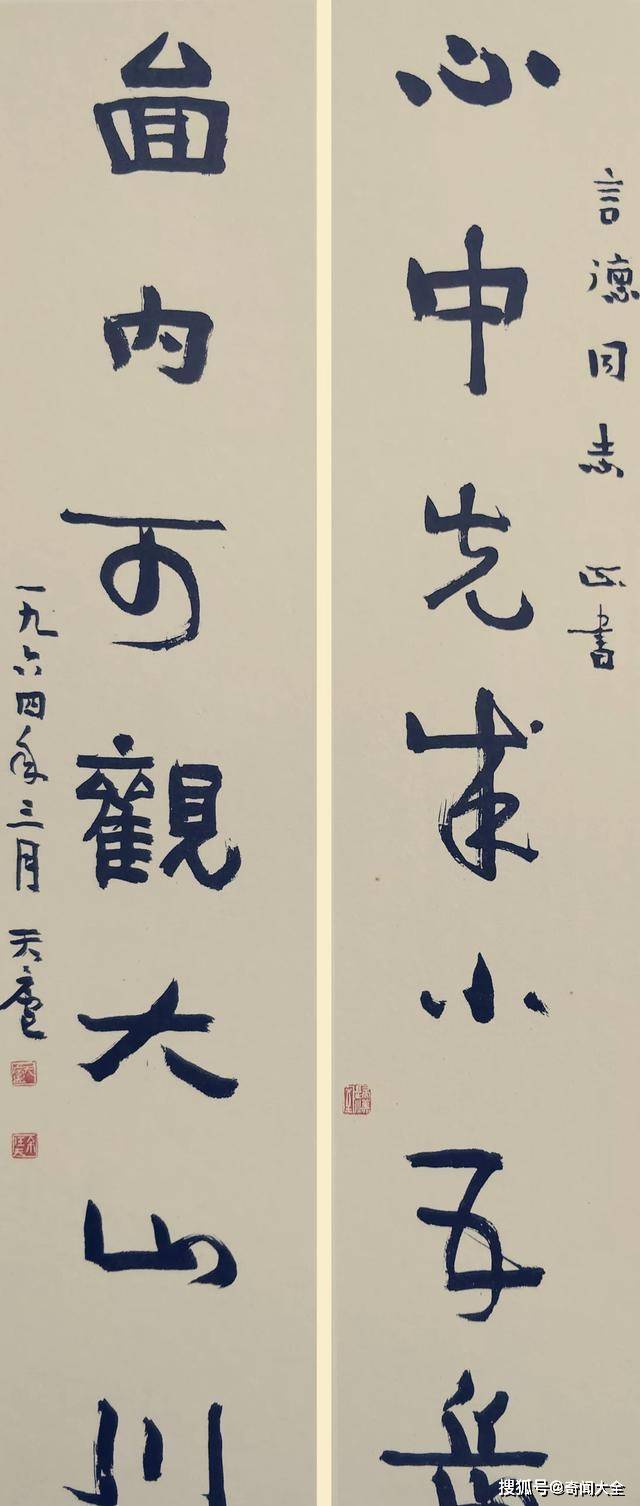 言德同志 正書
心中先求小五岳
啚内可觀大山川
一九六四年三月 天廬
搜狐号@奇闻大全